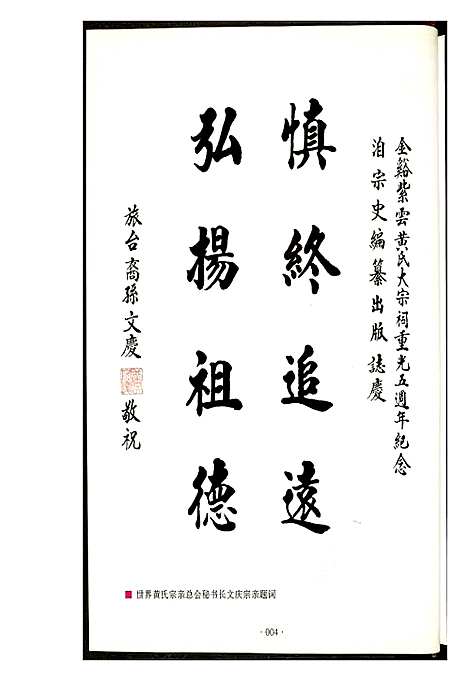 金谿紫雲黃氏大宗祠重光五週年紀念
洎宗史編纂出版誌慶
慎終追遠
弘揚祖德
旅台裔孫文慶 敬祝
世界黄氏宗亲总会秘书长文庆宗亲题词
·004·